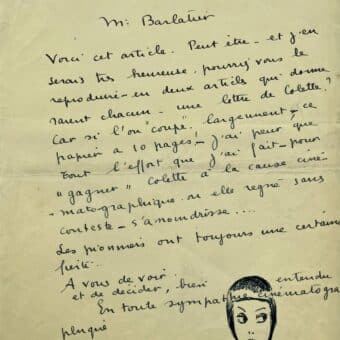 M: Barlatier
Voici cet article. Peut être - et j'en
serais très heureuse, pourriez vous le
reproduire - en deux articles qui donne
raient chacun - une lettre de Colette?
Car si l'on "coupe" largement - ce
papier a 10 pages! - j'ai peur que
tout l'effort que j'ai fait - pour
"gagner" Colette à la cause ciné-
matographique où elle règne sans
conteste - s'amoindrisse....
Les pionniers ont toujours une certaine
A vous de voir
et de décider, bien entendu
En toute sympathie cinématogra
phique